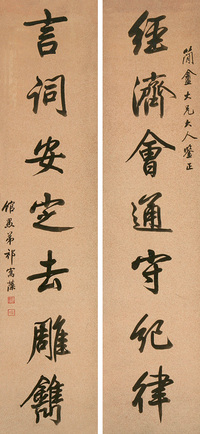 簡盦大兄大人鑒正
經濟會通守紀律
言詞安定去雕鐫
館愚弟祁寯藻